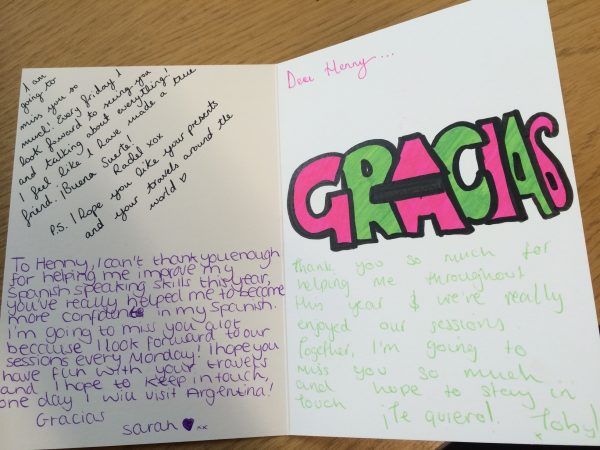 I am
going to
miss you so
much! Every friday I
look forward to seeing you
and talking about everything!
I feel like I have made a true
friend. ¡Buena Suerte!
Rachel xox
P.S. I hope you like your presents
and your travels around the
world
To Henny, I can't thank you enough
for helping me improve my
Spanish speaking skills this year,
you've really helped me to become
more confident in my Spanish.
I'm going to miss you alot
because I look forward to our
sessions every Monday! I hope you
have fun with your travels
and I hope to keep in touch,
one day I will visit Argentina!
Gracias
sarah xx
Dear Henny...
GRACIAS
Thank you so much for
helping me throughout
this year & we're really
enjoyed our sessions
together, I'm going to
miss you so much
and hope to stay in
touch
¡Te quiero! Toby!
x